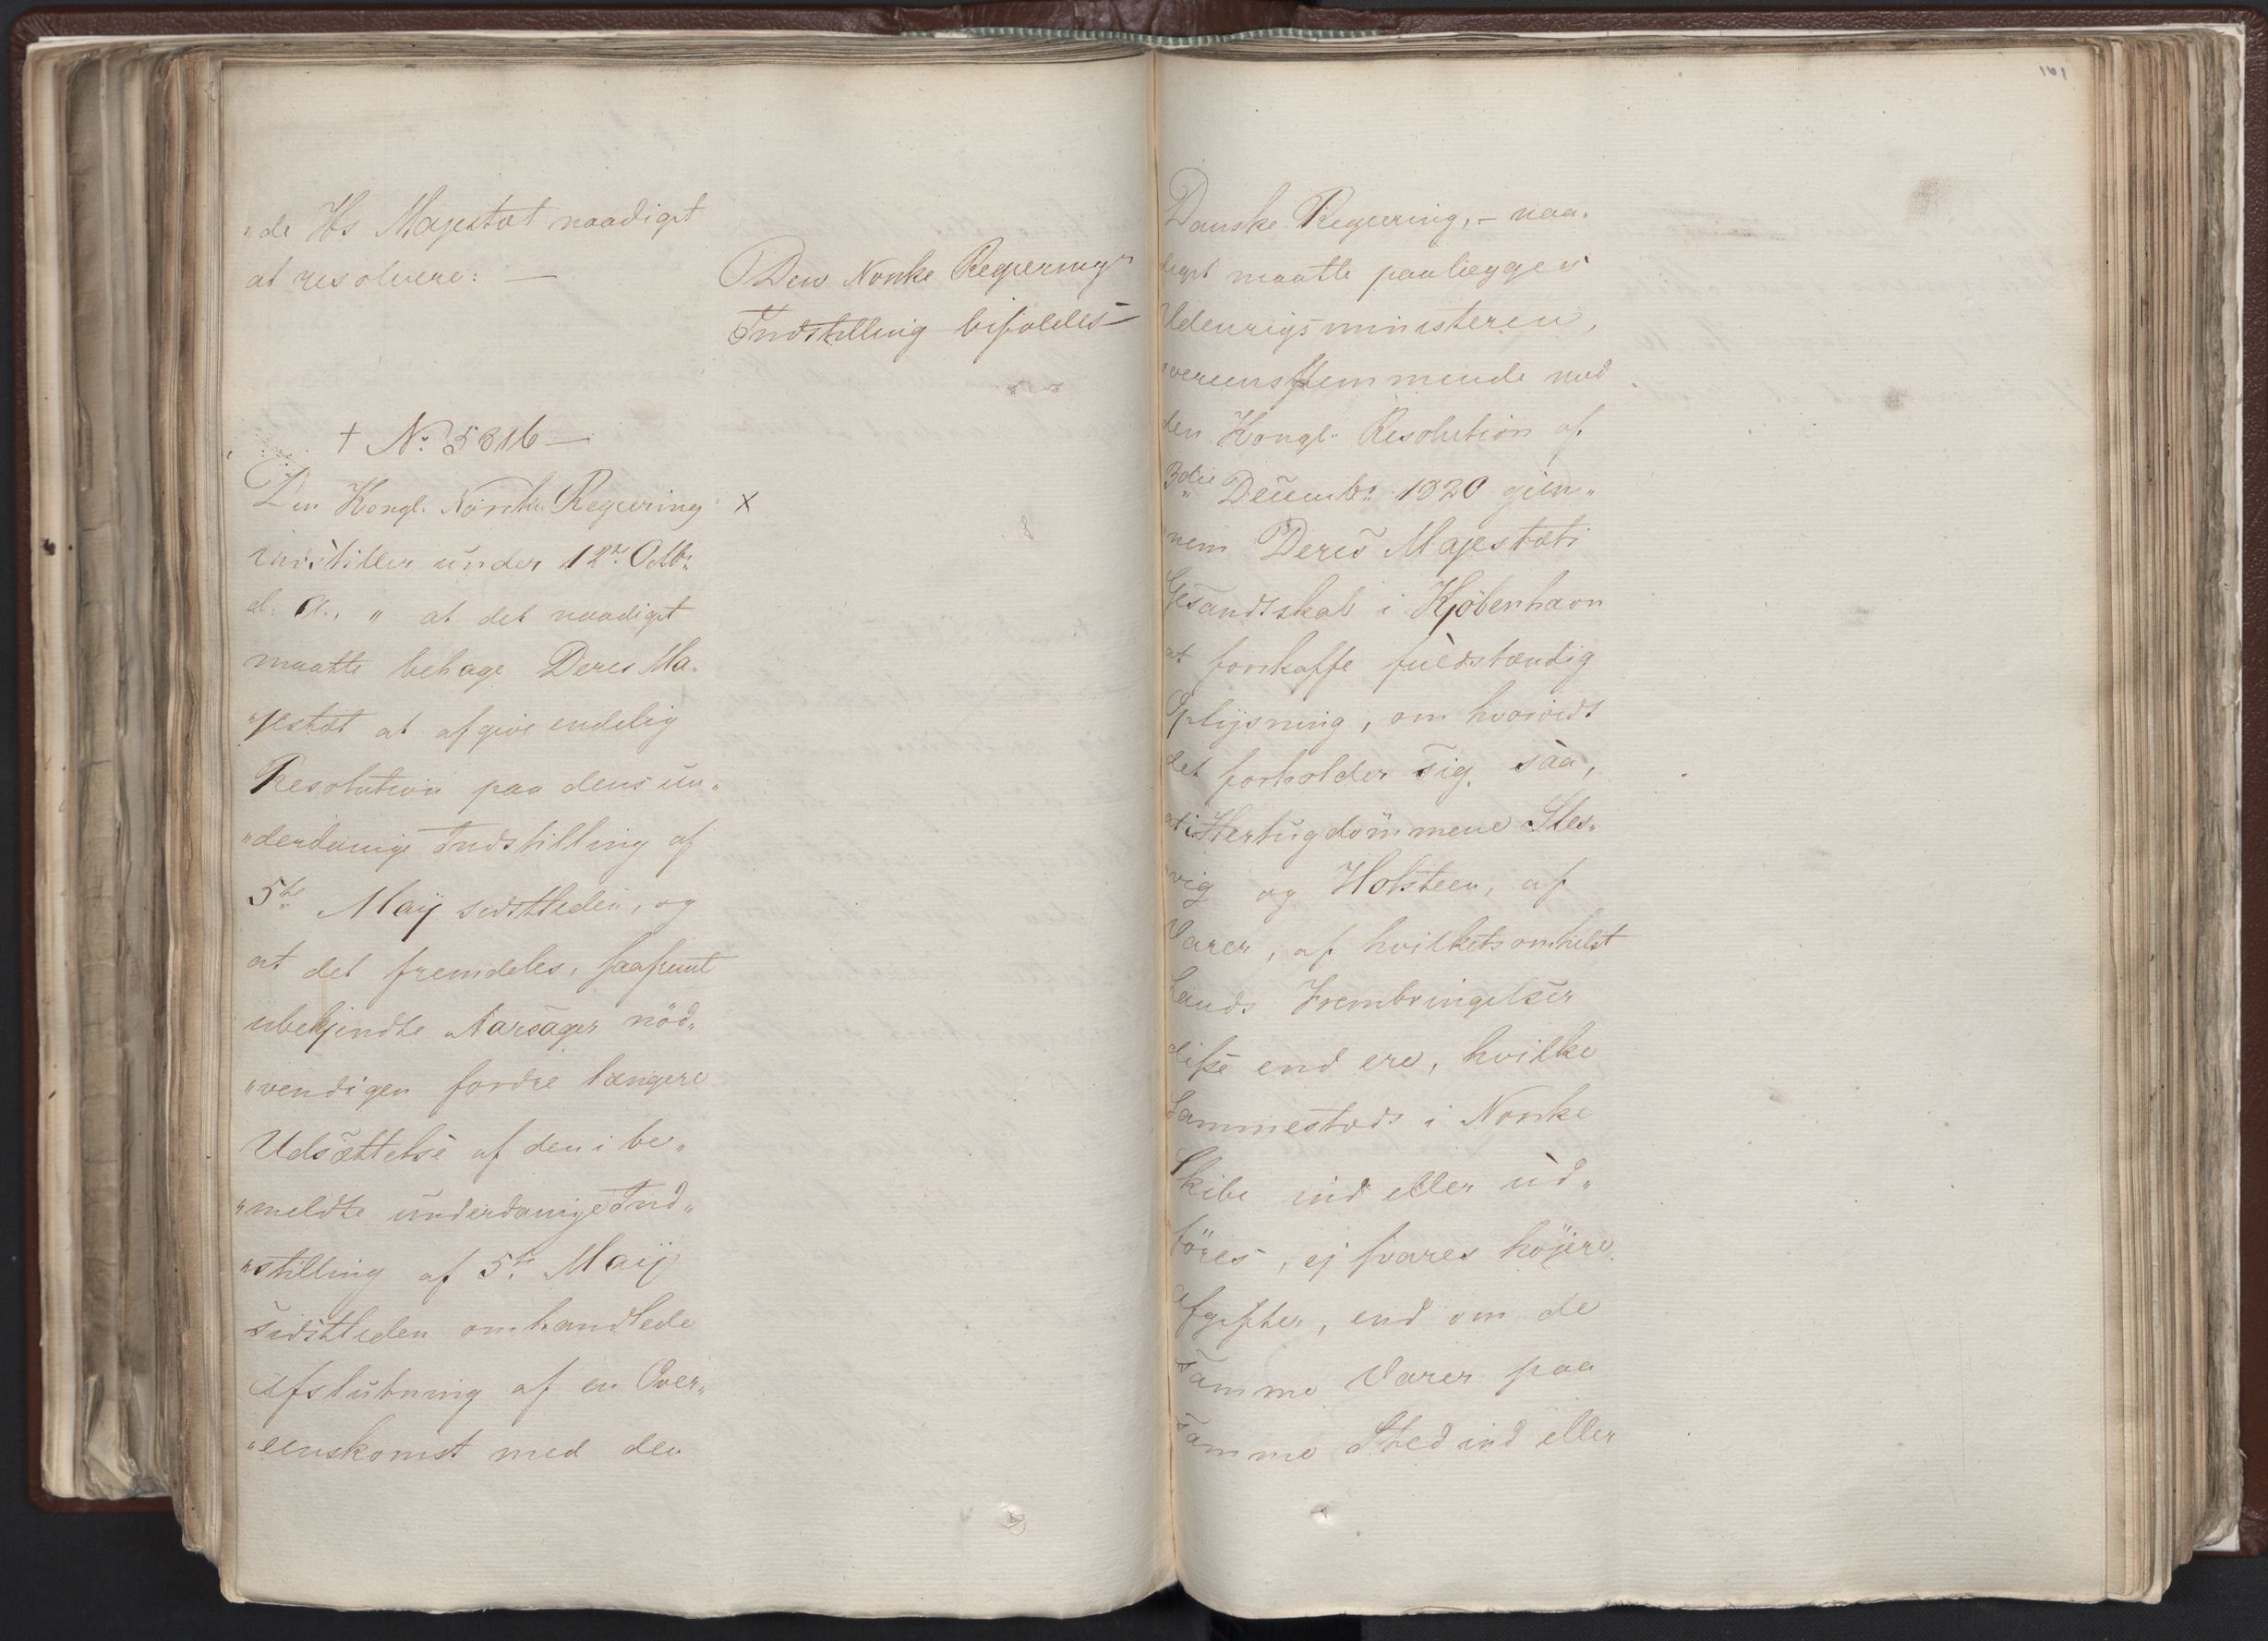 "de Hs Majestæt naadigst
at resolvere: —
Den Norske Regierings
Indstilling bifaldes —
† No. 5816 —
Den Kongl. Norske Regiering X
indstiller under 12te Octbr.
d. A., " at det naadigst
maatte behage Deres Ma„
"jestæt at afgive endelig
Resolution paa dens un„
"derdanige Indstilling af
5te Maij sidstleden, og
at det fremdeles, saafremt
ubekjendte Aarsager nöd„
"vendigen fordre længere
Udsættelse af den i be„
"meldte underdanige Ind„
"stilling af 5te Maij
sidstleden omhandlede
Afslutning af en Over„
"eenskomst med den
101
Danske Regiering, — naa„
digst maatte paalægges
Udenrigsministeren,
overeensstemmende med
den Kongl. Resolution af
3die Decembr. 1820 gien„
"nem Deres Majestæts
Gesandtskab i Kjöbenhavn
at forskaffe fuldstændig
Oplysning, om hvorvidt
det forholder sig saa,
at i Hertugdömmene Sles„
"vig og Holsteen, af
Varer, af hvilketsomhelst
Lands Frembringelser
disse end ere, hvilke
sammesteds i Norske
Skibe ind eller ud„
"föres, ej svares höjere
Afgifter, end om de
samme Varer paa
samme Sted ind eller